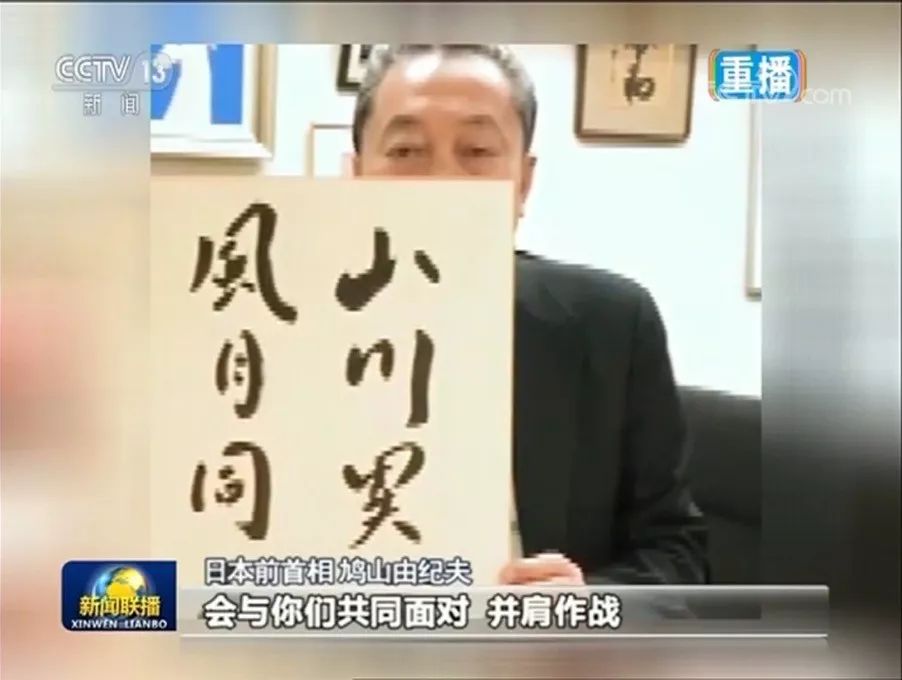 CCTV 13
新闻
重播
山川異
風月同
日本前首相 鸠山由纪夫
会与你们共同面对 并肩作战
新闻联播
XINWEN LIANBO